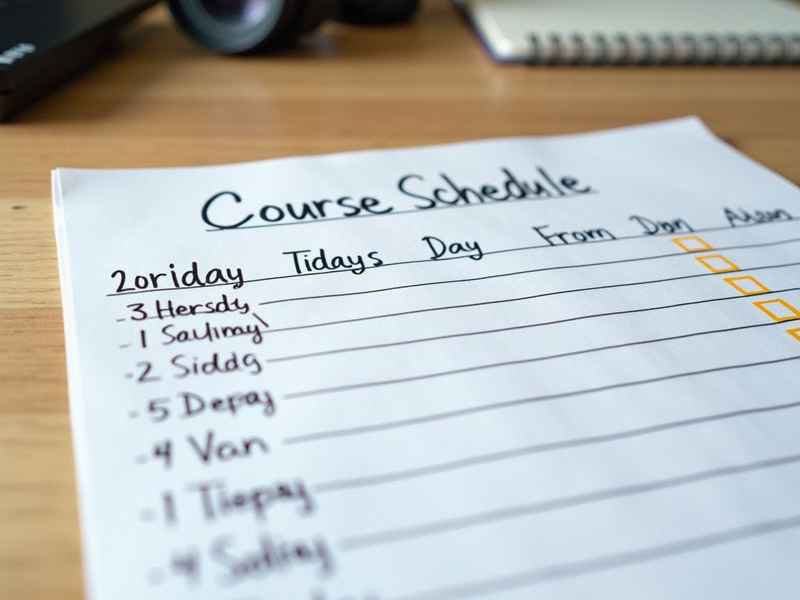 Course Schedule
2oriday Tidays Day From Don
- 3 Hersdy
- 1 Saulimay
- 2 Siddg
- 5 Depay
- 4 Van
- 1 Tiepay
- 4